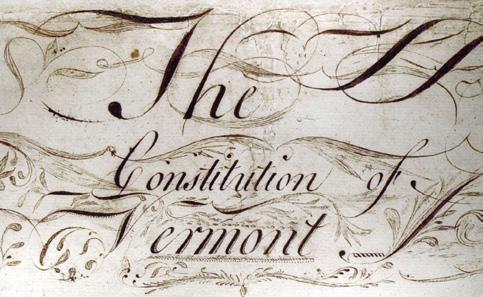 The
Constitution of
Vermont